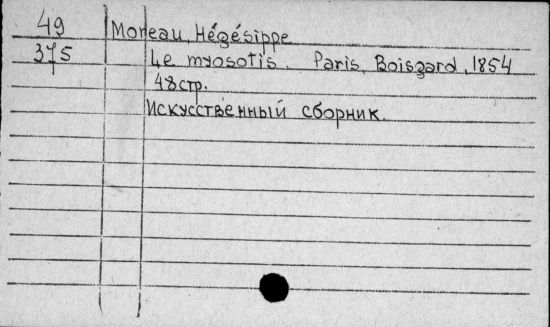 49 Moreau, Hégésippe
375 Le myosotis. Paris, Boisgard, 1854
48 стр.
Искусственный сборник.